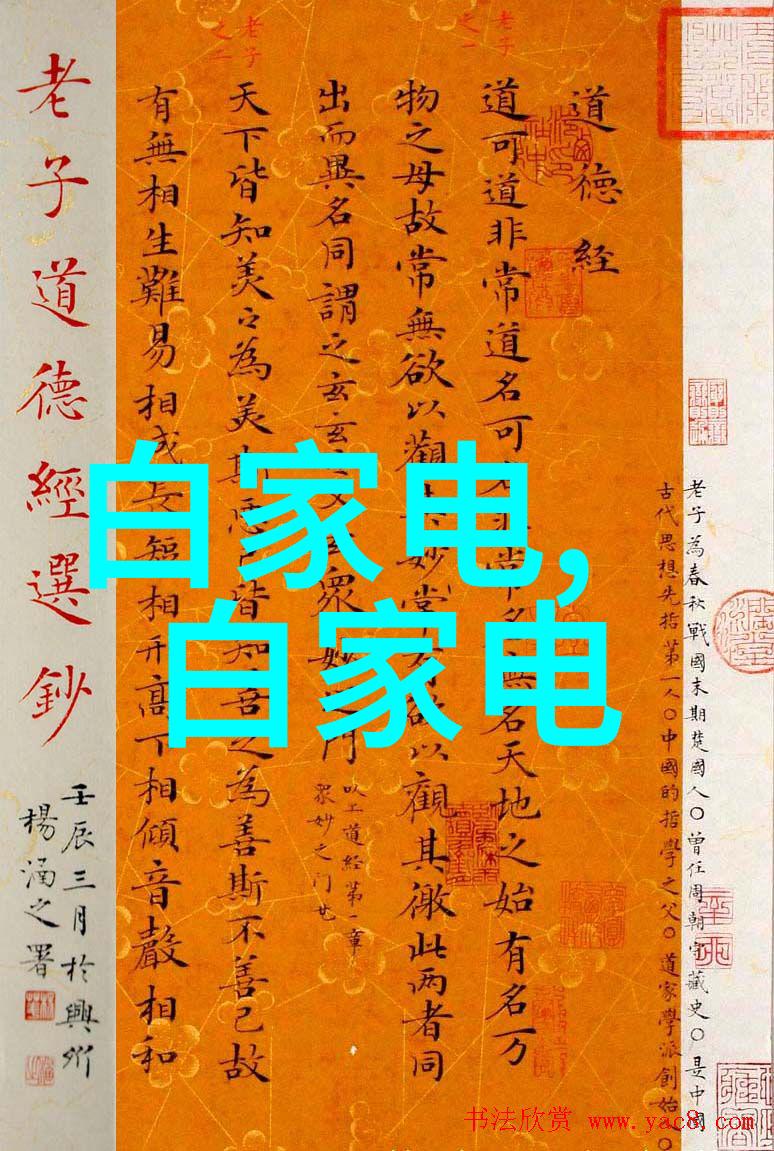 老子道德經選鈔
壬辰三月於興州
楊涵之署
老子
之一
老子
之二
道德經
道可道非常道名可名非常名無名天地之始有名万
物之母故常無欲以觀其妙常有欲以觀其徼此两者同
出而異名同謂之玄玄之又玄眾妙之門
以上道經第一章
眾妙之门也
天下皆知美之為美斯惡已皆知善之為善斯不善已故
有無相生難易相成長短相形高下相傾音聲相和
老子為春秋戰國末期楚國人〇曾任周朝守藏史〇是中國
古代思想先哲第一人〇中國的哲學之父〇道家學派創始〇
白家电,
白家电
书法欣赏 www.yac8.com